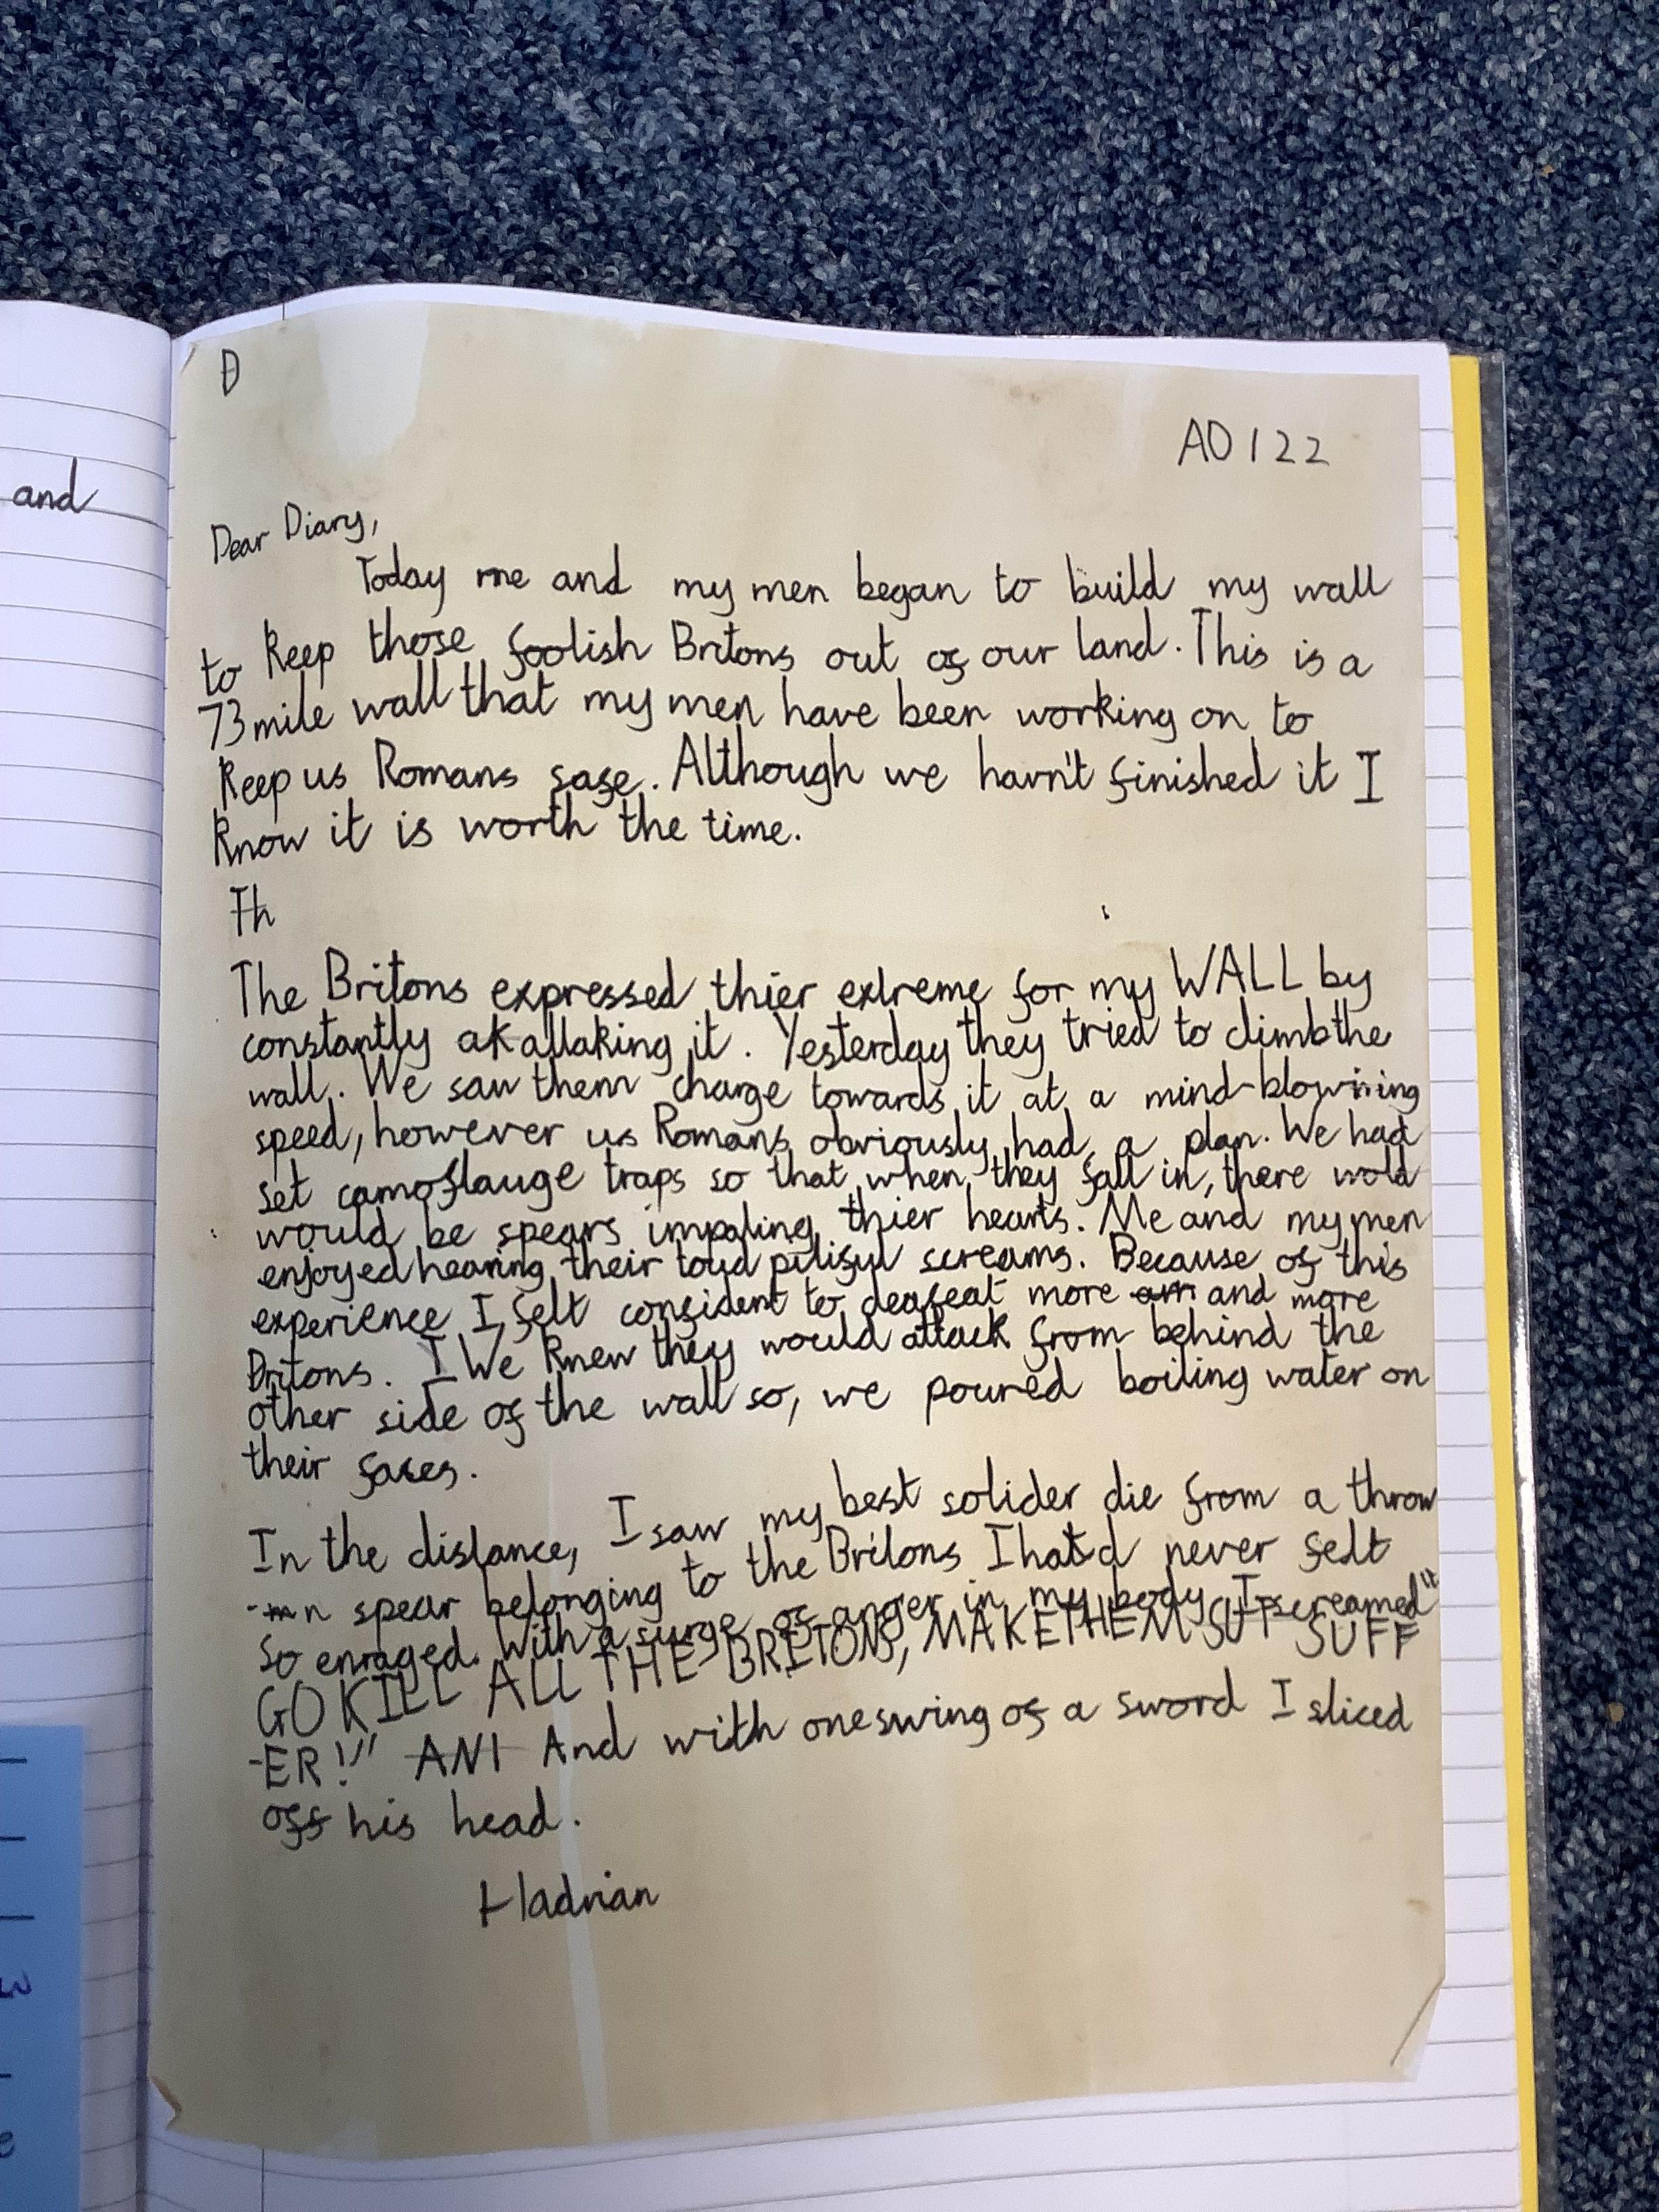 and
D
AD 122
Dear Diary,
Today me and my men began to build my wall
to keep those foolish Britons out of our land. This is a
73 mile wall that my men have been working on to
keep us Romans safe. Although we havn't finished it I
know it is worth the time.
Th
The Britons expressed thier extreme for my WALL by
constantly ak attaking it. Yesterday they tried to climb the
wall. We saw them charge towards it at a mind-blowining
speed, however us Romans obviously had a plan. We had
set camoflauge traps so that when they fall in, there wold
would be spears impaling thier hearts. Me and my men
enjoyed hearing their loud pitiful screams. Because of this
experience I felt confident to deafeat more am and more
Britons. I We knew they would attack from behind the
other side of the wall so, we poured boiling water on
their faces.
In the distance, I saw my best solider die from a throw
-n spear belonging to the Britons I had never felt
so enraged. With a surge of anger in my body I screamed"
GO KILL ALL THE BRITONS, MAKE THEM SUF SUFF
-ER!" ANI And with one swing of a sword I sliced
off his head.
Hadrian
w
e